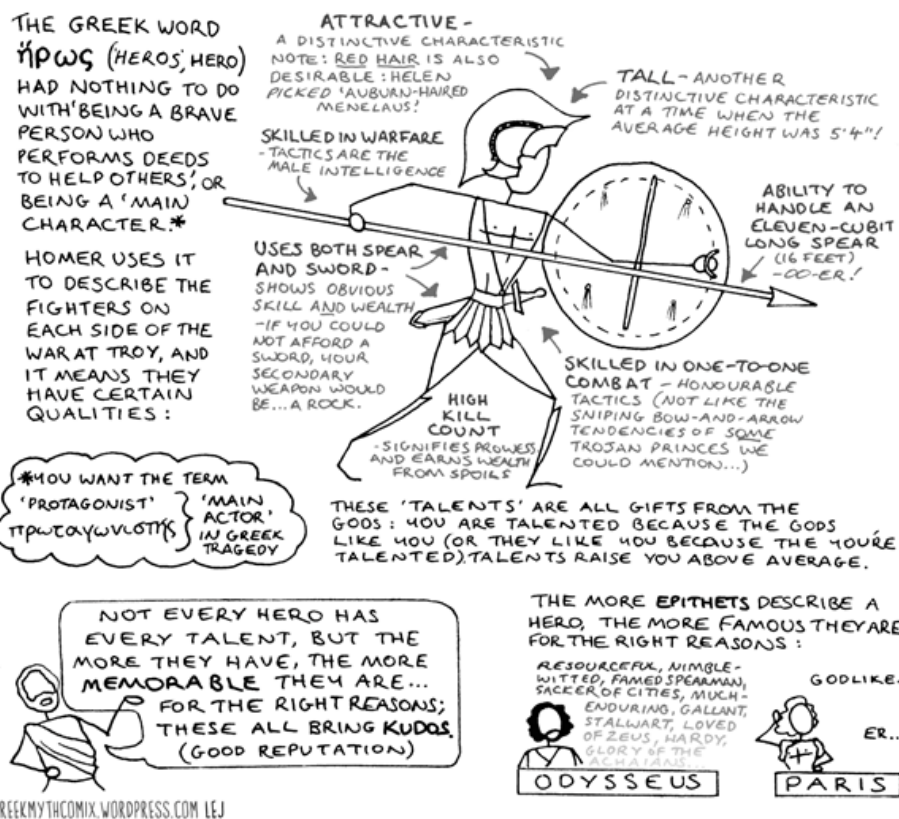 THE GREEK WORD
ἥρως ('HEROS', HERO)
HAD NOTHING TO DO
WITH 'BEING A BRAVE
PERSON WHO
PERFORMS DEEDS
TO HELP OTHERS', OR
BEING A 'MAIN
CHARACTER'.*
HOMER USES IT
TO DESCRIBE THE
FIGHTERS ON
EACH SIDE OF THE
WAR AT TROY, AND
IT MEANS THEY
HAVE CERTAIN
QUALITIES:
ATTRACTIVE -
A DISTINCTIVE CHARACTERISTIC
NOTE: RED HAIR IS ALSO
DESIRABLE: HELEN
PICKED 'AUBURN-HAIRED
MENELAUS!
TALL - ANOTHER
DISTINCTIVE CHARACTERISTIC
AT A TIME WHEN THE
AVERAGE HEIGHT WAS 5'4"!
SKILLED IN WARFARE
- TACTICS ARE THE
MALE INTELLIGENCE
ABILITY TO
HANDLE AN
ELEVEN-CUBIT
LONG SPEAR
(16 FEET)
- OO-ER!
USES BOTH SPEAR
AND SWORD -
SHOWS OBVIOUS
SKILL AND WEALTH
- IF YOU COULD
NOT AFFORD A
SWORD, YOUR
SECONDARY
WEAPON WOULD
BE... A ROCK.
HIGH
KILL
COUNT
- SIGNIFIES PROWESS
AND EARNS WEALTH
FROM SPOILS
SKILLED IN ONE-TO-ONE
COMBAT - HONOURABLE
TACTICS (NOT LIKE THE
SNIPING BOW-AND-ARROW
TENDENCIES OF SOME
TROJAN PRINCES WE
COULD MENTION...)
*YOU WANT THE TERM
'PROTAGONIST'
πρωταγωνιστής
'MAIN
ACTOR'
IN GREEK
TRAGEDY
THESE 'TALENTS' ARE ALL GIFTS FROM THE
GODS: YOU ARE TALENTED BECAUSE THE GODS
LIKE YOU (OR THEY LIKE YOU BECAUSE THE YOU'RE
TALENTED). TALENTS RAISE YOU ABOVE AVERAGE.
NOT EVERY HERO HAS
EVERY TALENT, BUT THE
MORE THEY HAVE, THE MORE
MEMORABLE THEY ARE...
FOR THE RIGHT REASONS;
THESE ALL BRING KUDOS.
(GOOD REPUTATION)
THE MORE EPITHETS DESCRIBE A
HERO, THE MORE FAMOUS THEY ARE
FOR THE RIGHT REASONS:
RESOURCEFUL, NIMBLE-
WITTED, FAMED SPEARMAN,
SACKER OF CITIES, MUCH-
ENDURING, GALLANT,
STALWART, LOVED
OF ZEUS, HARDY,
GLORY OF THE
ACHAIANS...
ODYSSEUS
GODLIKE..
ER...
PARIS
REEKMYTHCOMIX.WORDPRESS.COM LEJ